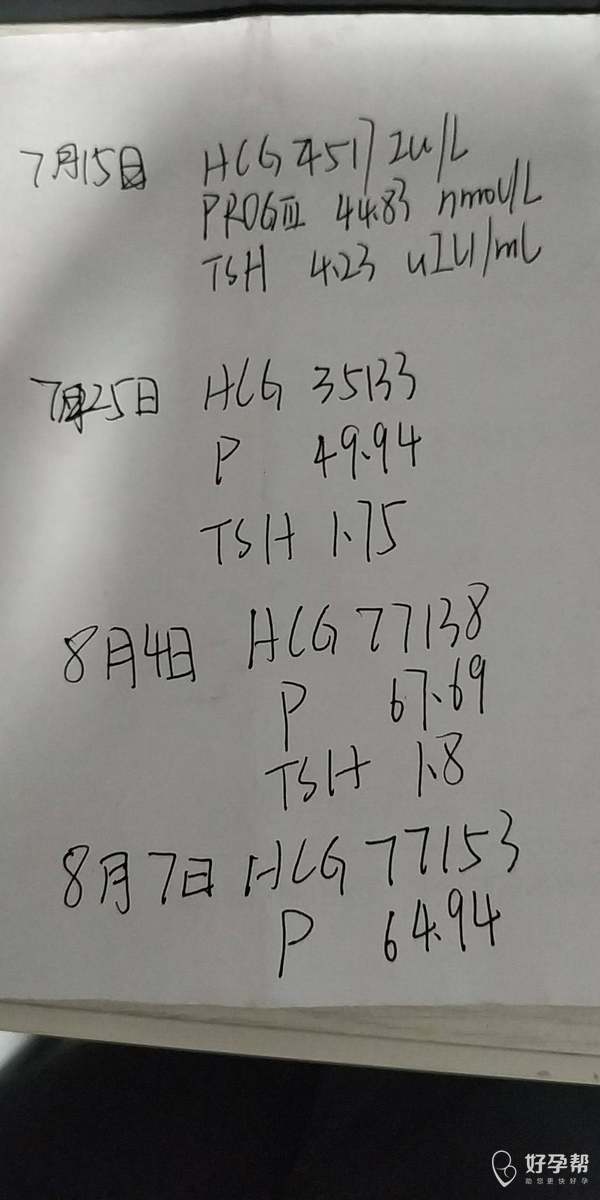 7月15日 HCG 4517 IU/L
PROGIII 44.83 nmol/L
TSH 4.23 uIU/mL
7月25日 HCG 35133
P 49.94
TSH 1.75
8月4日 HCG 77138
P 67.69
TSH 1.8
8月7日 HCG 77153
P 64.94
好孕帮
助您更快好孕